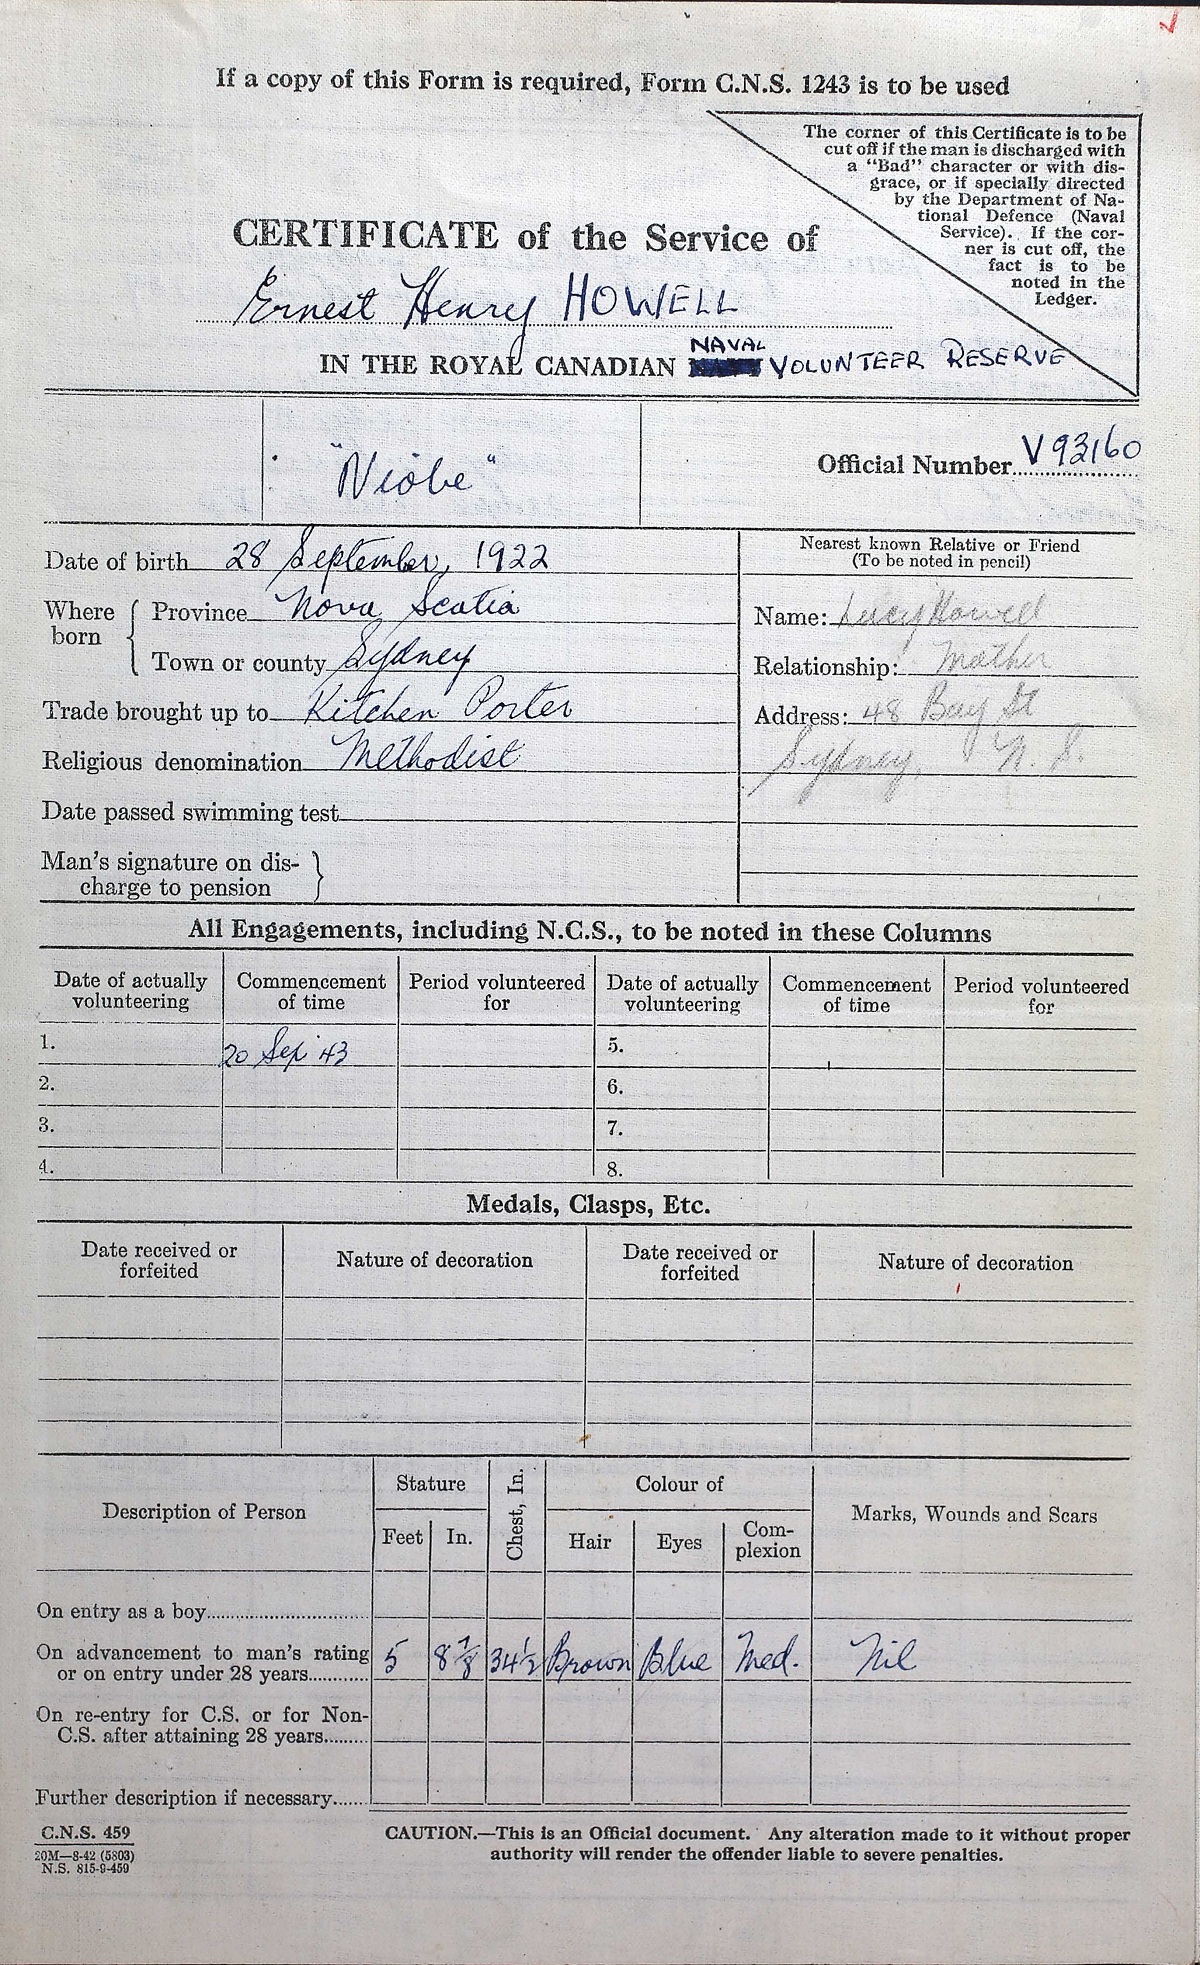 If a copy of this Form is required, Form C.N.S. 1243 is to be used
The corner of this Certificate is to be
cut off if the man is discharged with
a "Bad" character or with dis-
grace, or if specially directed
by the Department of Na-
tional Defence (Naval
Service). If the cor-
ner is cut off, the
fact is to be
noted in the
Ledger.
CERTIFICATE of the Service of
Ernest Henry HOWELL
NAVAL
IN THE ROYAL CANADIAN VOLUNTEER RESERVE
"Niobe"
Official Number V93160
Date of birth 28 September, 1922
Where born
Province Nova Scotia
Town or county Sydney
Trade brought up to Kitchen Porter
Religious denomination Methodist
Date passed swimming test
Man's signature on dis-
charge to pension
Nearest known Relative or Friend
(To be noted in pencil)
Name: Lucy Howell
Relationship: Mother
Address: 48 Bay St
Sydney, N.S.
All Engagements, including N.C.S., to be noted in these Columns
Date of actually volunteering Commencement of time Period volunteered for Date of actually volunteering Commencement of time Period volunteered for
1. 20 Sep '43 5.
2. 6.
3. 7.
4. 8.
Medals, Clasps, Etc.
Date received or forfeited Nature of decoration Date received or forfeited Nature of decoration
Description of Person Stature Chest, In. Colour of Marks, Wounds and Scars
Feet In. Hair Eyes Com-
plexion
On entry as a boy
On advancement to man's rating
or on entry under 28 years 5 8 7/8 34 1/2 Brown Blue Med. Nil
On re-entry for C.S. or for Non-
C.S. after attaining 28 years
Further description if necessary
C.N.S. 459
20M—8-42 (5803)
N.S. 815-9-459
CAUTION.—This is an Official document. Any alteration made to it without proper
authority will render the offender liable to severe penalties.